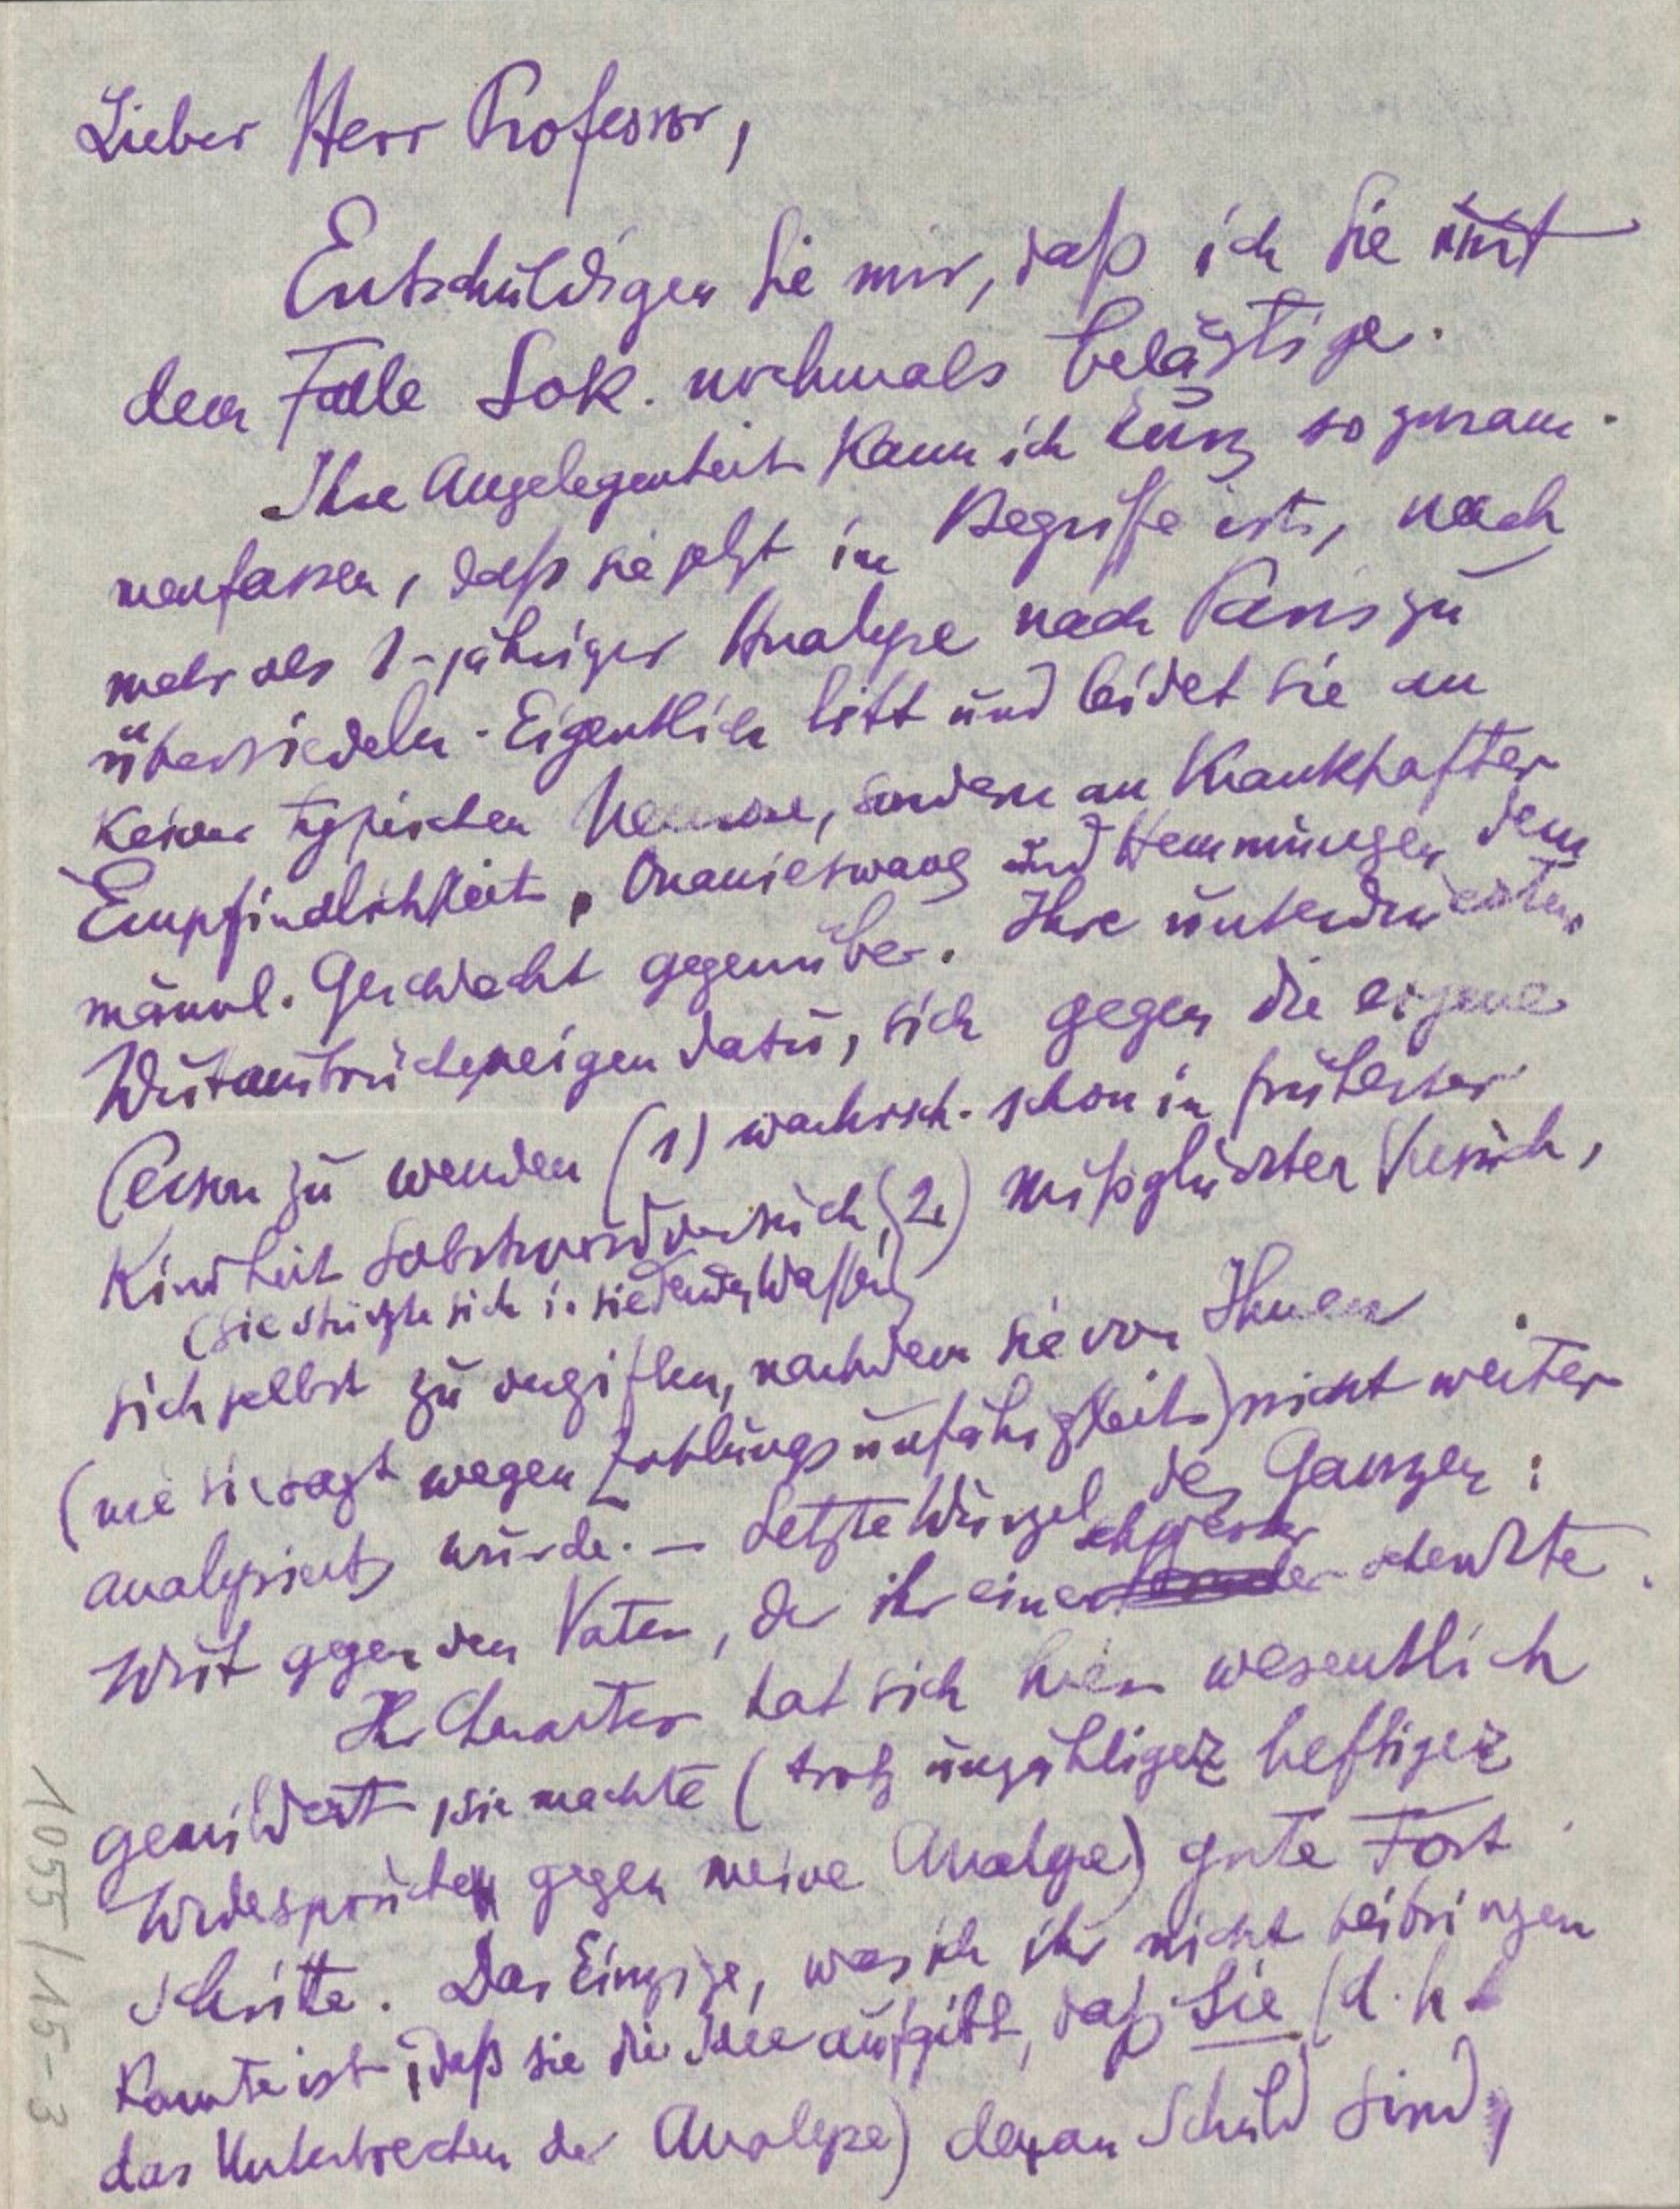 Lieber Herr Professor,
Entschuldigen Sie mir, daß ich Sie mit
dem Falle Sok. nochmals belästige.
Ihre Angelegenheit kann ich kurz so zusam-
menfassen, daß sie jetzt im Begriffe ist, nach
mehr als 1-jähriger Analyse nach Paris zu
übersiedeln. Eigentlich litt und leidet sie an
keiner typischen Neurose, sondern an krankhafter
Empfindlichkeit, Onaniezwang und Hemmungen dem
männl. Geschlecht gegenüber. Ihre unterdrückten
Wutausbrüche neigen dazu, sich gegen die eigene
Person zu wenden (1) wahrsch. schon in frühester
Kindheit Selbstmordversuch, (2.) mißglückter Versuch,
(sie stürzte sich in siedendes Wasser)
sich selbst zu vergiften, nachdem sie von Ihnen
(wie sie sagt wegen Zahlungsunfähigkeit) nicht weiter
analysiert wurde. – Letzte Wurzel des Ganzen:
Schwester
Wut gegen den Vater, der ihr eine schenkte.
Ihr Charakter hat sich hier wesentlich
gemildert, sie machte (trotz unzähliger heftiger
Widersprüche gegen meine Analyse) gute Fort
schritte. Das Einzige, was ich ihr nicht beibringen
konnte ist, daß sie die Idee aufgibt, daß Sie (d. h.
das Unterbrechen der Analyse) daran Schuld sind,
1055/15-3